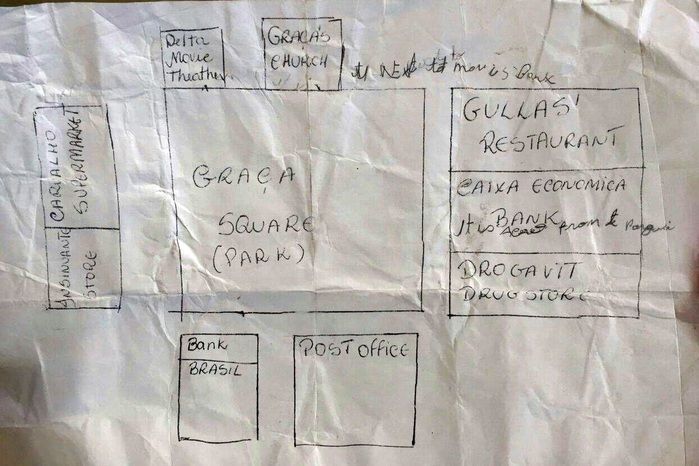 Delta
Movie
Theather
GRAÇA'S
CHURCH
It is
Bank
CARVALHO
SUPERMARKET
INSINUANTE
STORE
GRAÇA
SQUARE
(PARK)
GULLAS'
RESTAURANT
CAIXA ECONOMICA
BANK
It is from
DROGAVITT
DRUGSTORE
Bank
BRASIL
POST OFFICE